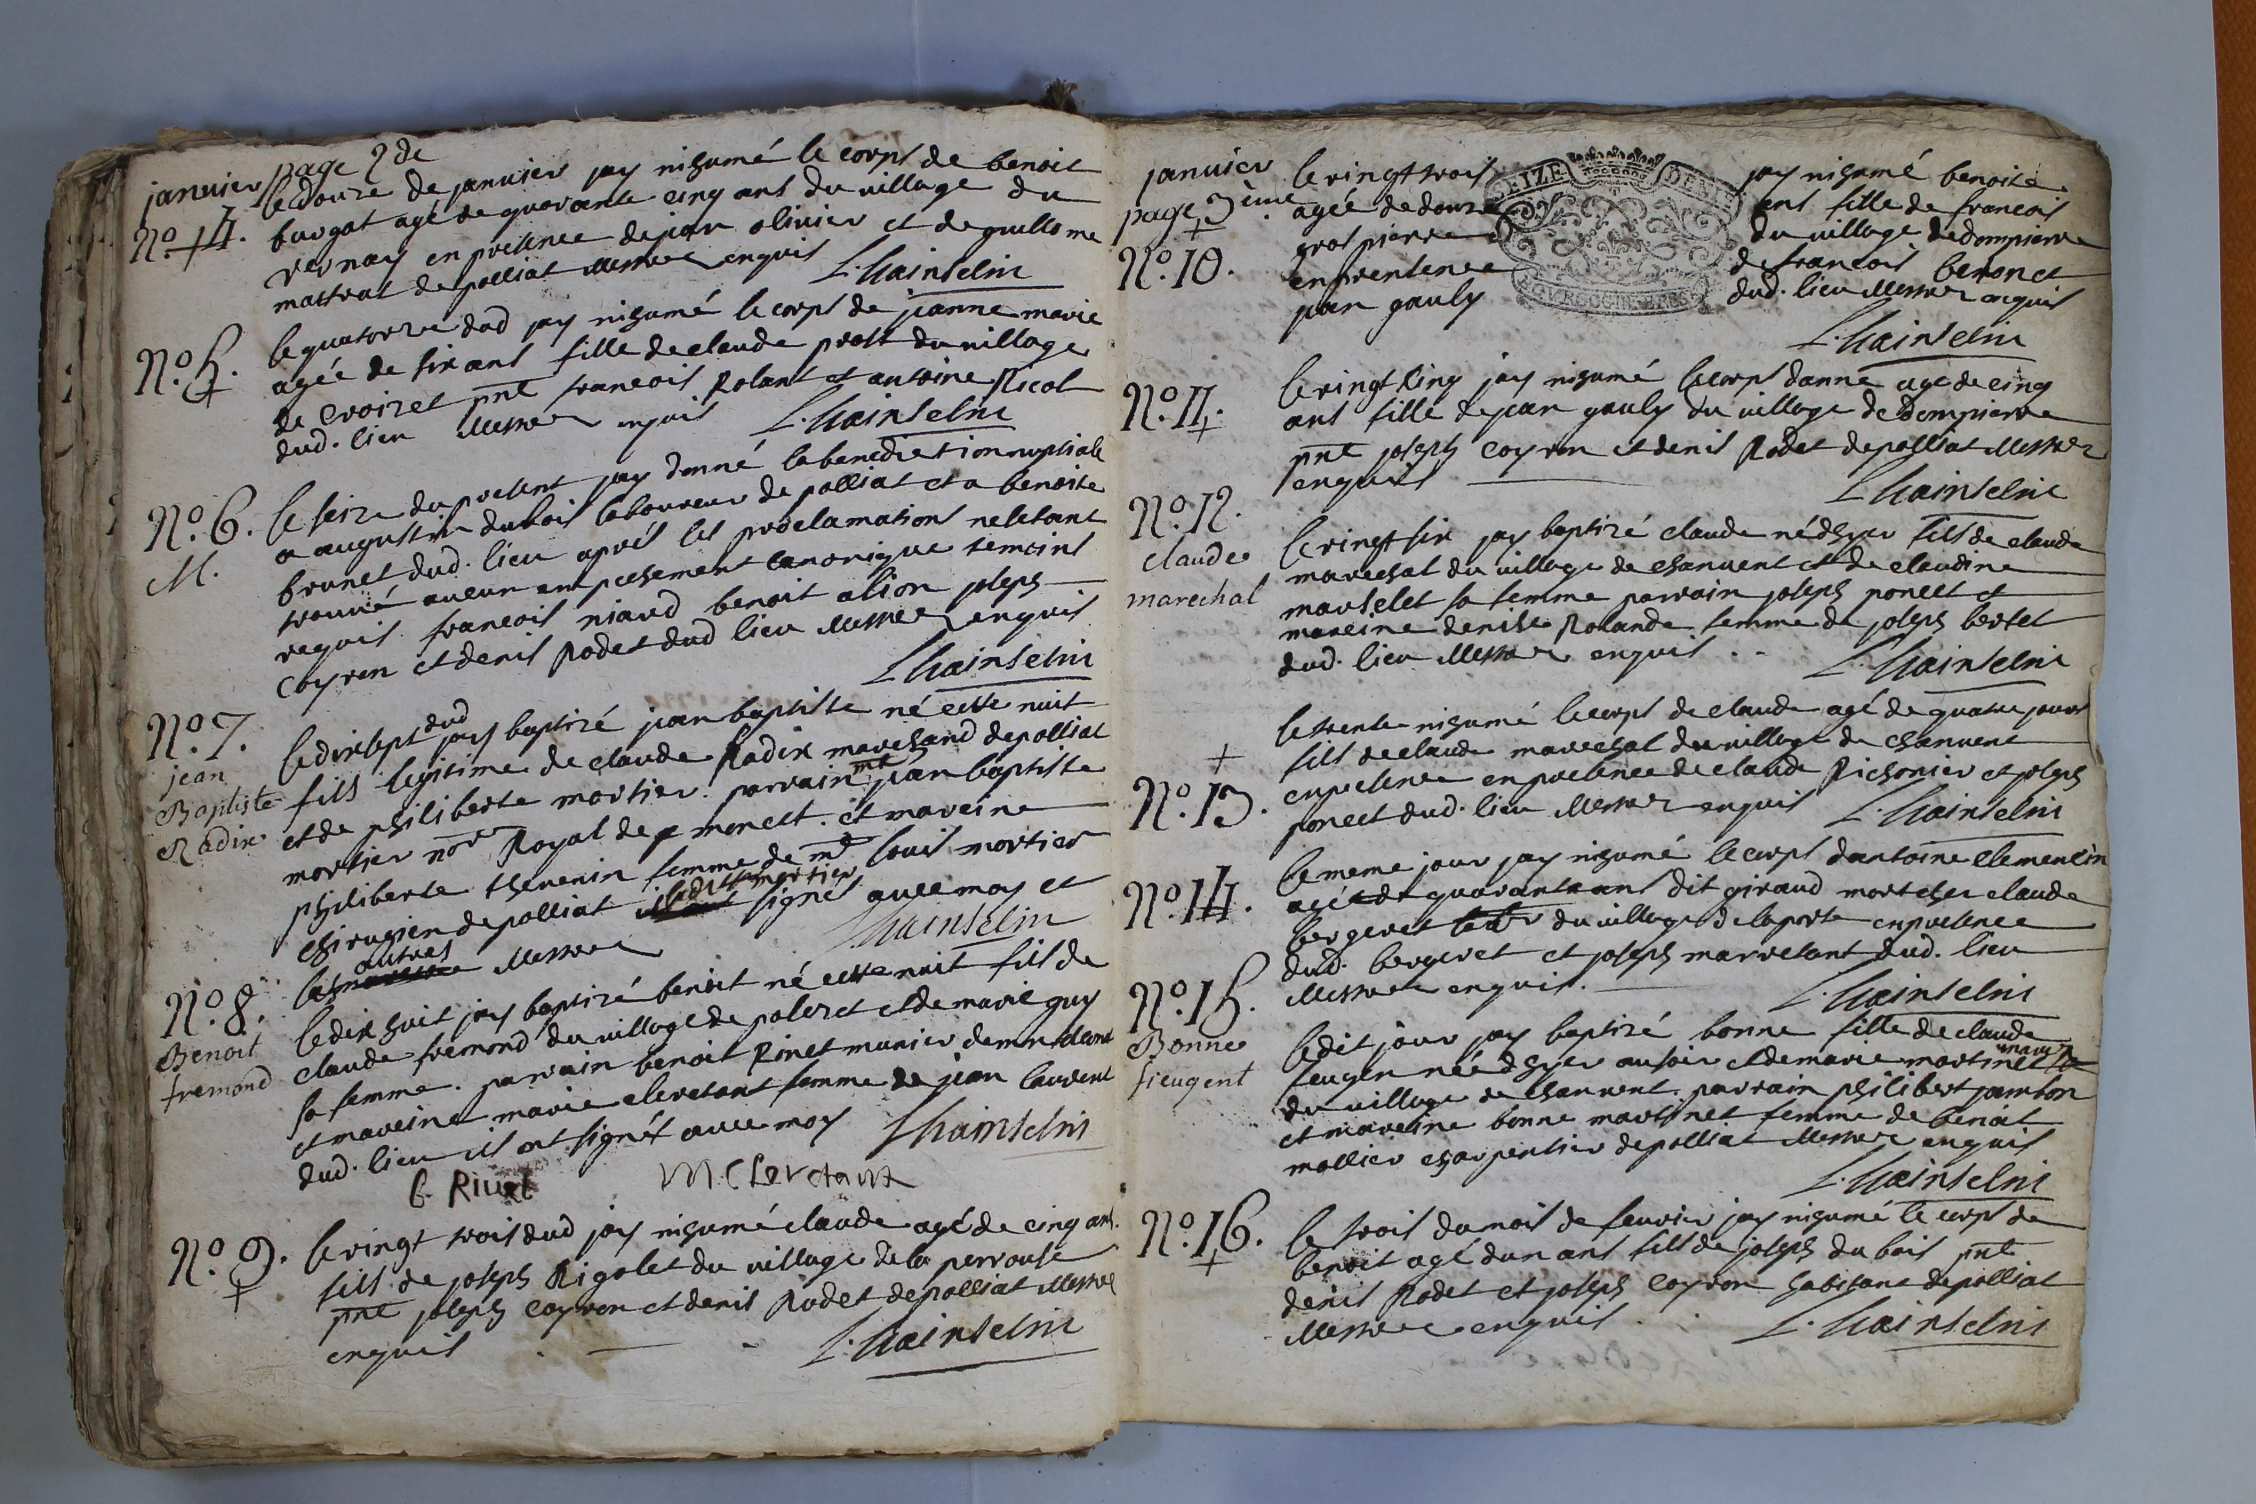 page 2de
janvier
No. 4.
le douze de janvier jay nihumé le corps de benoit
burgat agé de quarante cinq ans du village du
vernay en presence de jean olivier et de guillome
mattrat de polliat illettrez enquis
L. Chainselin
No. 5.
le quatorze dud jay nihumé le corps de jeanne marie
agée de six ans fille de claude prost du village
de croizet pnt francois Rolant et antoine Nicol
dud. lieu illettrez enquis L. Chainselin
No. 6.
M.
le seize du present jay donné la benediction nuptiale
a augustin dubois laboureur de polliat et a benoite
brunet dud. lieu aprés les proclamations ne letant
trouvé aucun empechement canonique temoins
requis francois niaud benoit alion joseph
Coyron et denis Rodet dud lieu illettrez enquis
L Chainselin
No. 7.
jean
Baptiste
Radix
le dix sept dud jay baptizé jean baptiste né cette nuit
fils legitime de claude Radix marchand de polliat
et de philiberte mortier. parrain mre jean baptiste
mortier nore Royal de monett. et mareine
philiberte thevenin femme de mre louis mortier
chirugien de polliat ledit mortier signé avec moy et
les autres illettrez Chainselin
No. 8.
Benoit
fremond
le dix huit jay baptizé benoit né cette nuit fils de
claude fremond du village de polezet et de marie guy
sa femme. parrain benoit Rivet munier
et mareine marie clerctant femme de jean laurent
dud. lieu ils ont signés avec moy Chainselin
b. Rivet M Clerctant
No. 9.
le vingt trois dud jay nihumé claude agé de cinq ans.
fils de joseph Rigolet du village de la perrouse
pnt joseph Coyron et denis Rodet de polliat illettrez
enquis L. Chainselin
janvier
page 3ème
No. 10.
SEIZE DENIER
BOURG
le vingt trois jay nihumé benoite
agée de douze ans fille de francois
gros pierre du village de dompierre
en presence de francois benonet
jean gauly dud. lieu illettrez enquis
L. Chainselin
No. 11.
le vingt cinq jay nihumé le corps danne agé de cinq
ans fille de jean gauly du village de dompierre
pnt joseph Coyron et denis Rodet de polliat illettrez
enquis L Chainselin
No. 12.
claude
marechal
le vingt six jay baptizé claude né dhyer fils de claude
marechal du village de chanvent et de claudine
marselet sa femme parrain joseph poncet et
mareine denise Rolande femme de joseph bertet
dud. lieu illettrez enquis. L. Chainselin
No. 13.
le trente nihumé le corps de claude agé de quatre jours
fils de claude marechal du village de chanvent
en presence de claude Richonier et joseph
poncet dud. lieu illettrez enquis L. Chainselin
No. 14.
le meme jour jay nihumé le corps dantoine clemencin
agé de quarante ans dit giraud mort chez claude
bergeret du village de laporte en presence
dud. bergeret et joseph marretant dud. lieu
illettrez enquis. L. Chainselin
No. 15.
Bonne
fieugent
ledit jour jay baptizé bonne fille de claude
feugen née dhyer au soir et de marie martinet
du village de chanvent. parrain philibert jambon
et mareine bonne martinet femme de benoit
mallier charpentier de polliat illettrez enquis
L. Chainselin
No. 16.
le trois du mois de feuvrier jay nihumé le corps de
benoit agé dun ans fils de joseph du bois pnt
denis Rodet et joseph Coyron habitant de polliat
illettrez enquis. L. Chainselin